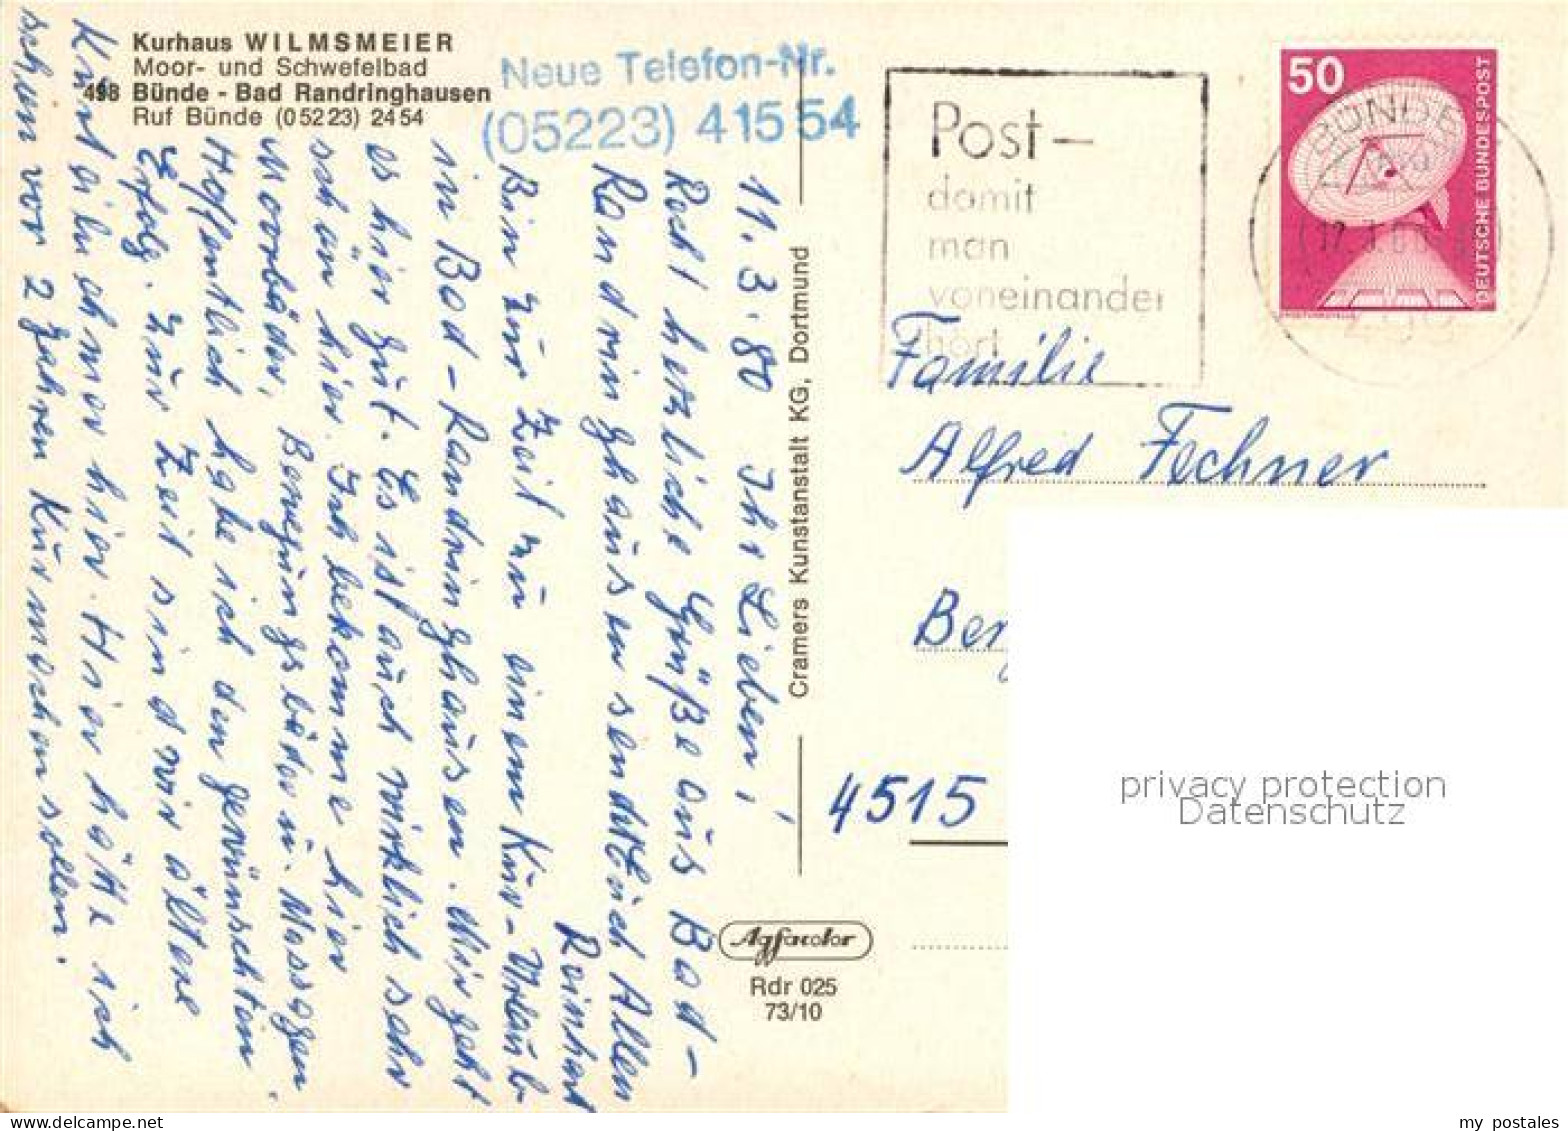 Kurhaus WILMSMEIER
Moor- und Schwefelbad
498 Bünde - Bad Randringhausen
Ruf Bünde (05223) 2454
Neue Telefon-Nr.
(05223) 41554
11.3.80 Ihr Lieben!
Recht herzliche Grüße aus Bad-
Randringhausen sendet Euch Allen
Reinhard
Bin zur Zeit zu einem Kur-Urlaub
in Bad-Randringhausen. Mir geht
es hier gut. Es ist auch wirklich sehr
schön hier. Ich bekomme hier
Moorbäder, Bewegungsbäder u. Massagen
Hoffentlich habe ich den gewünschten
Erfolg. Zur Zeit sind wir ältere
Kurteilnehmer hier. Hier hätte ich
schon vor 2 Jahren Kur machen sollen.
Cramers Kunstanstalt KG, Dortmund
Agfacolor
Rdr 025
73/10
Post-
damit
man
voneinander
hört
50
DEUTSCHE BUNDESPOST
BÜNDE
Familie
Alfred Fechner
Ber
4515
privacy protection
Datenschutz
my postales
www.delcampe.net